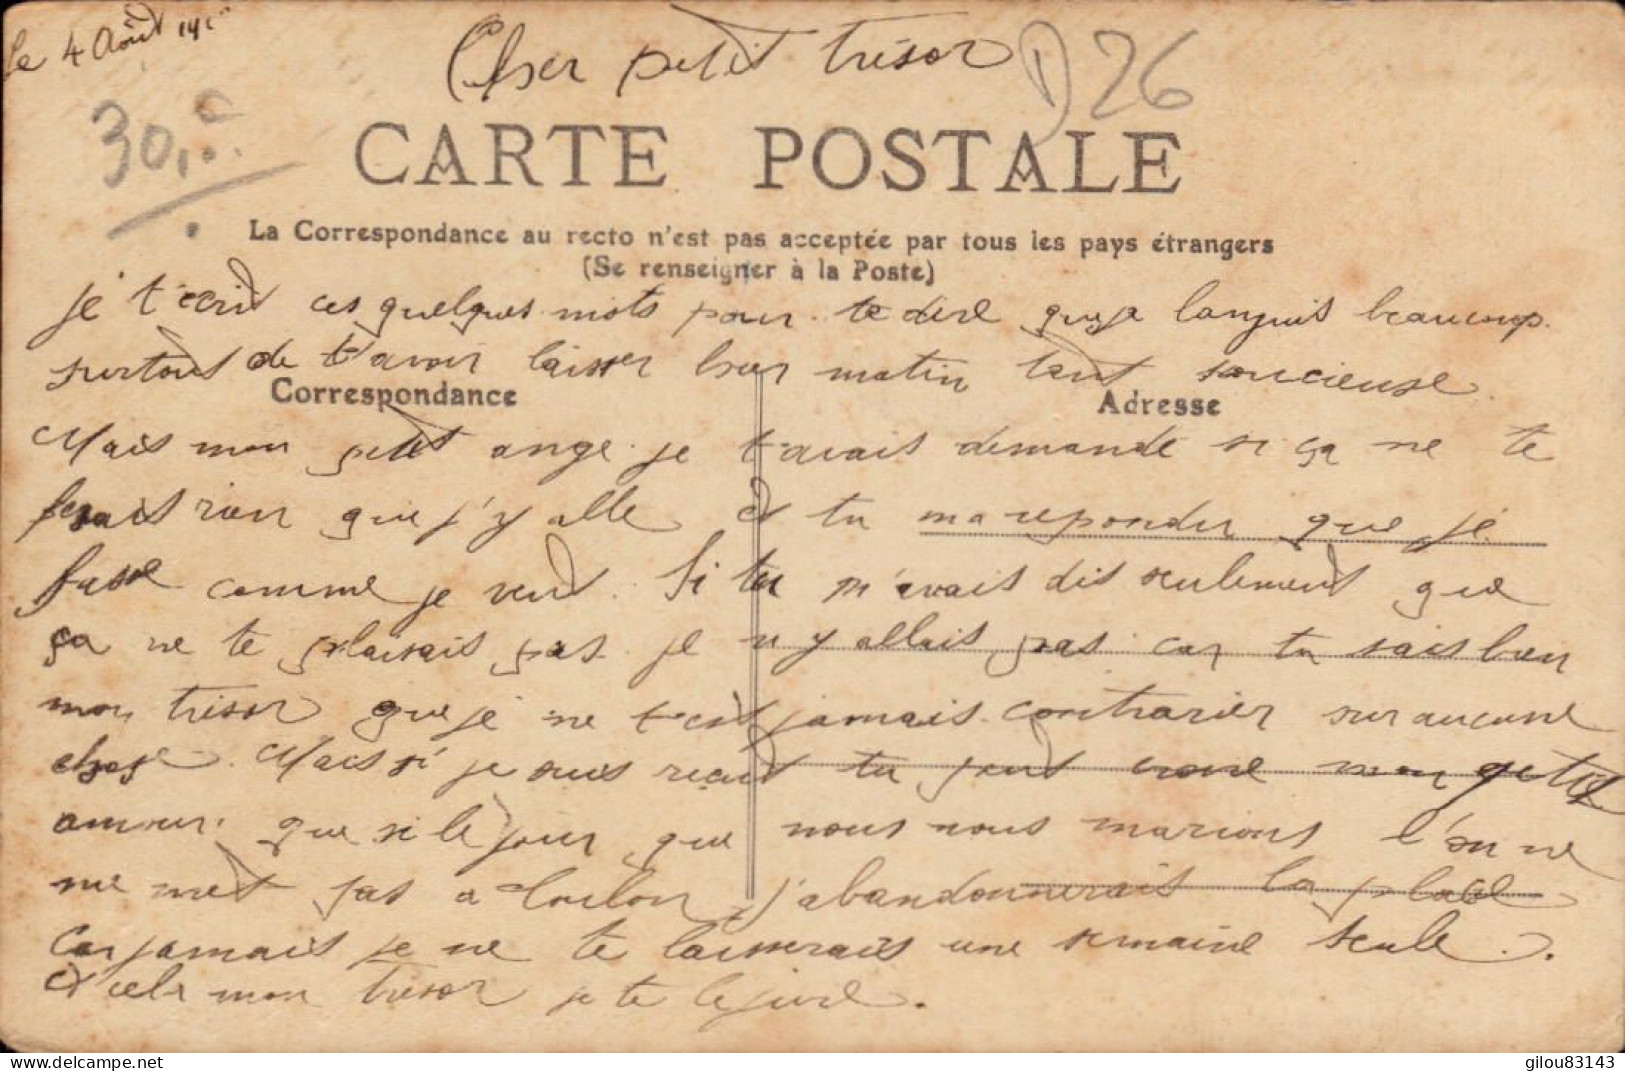 Le 4 Août 191
Cher petit trésor
D 26
30,
CARTE POSTALE
La Correspondance au recto n'est pas acceptée par tous les pays étrangers
(Se renseigner à la Poste)
je t'ecrit ces quelques mots pour te dire que je languis beaucoup.
surtout de t'avoir laisser hier matin tant soucieuse.
Correspondance
Adresse
Mais mon petit ange je t'avais demandé si ça ne te
fesait rien que j'y alle et tu ma reponder que je
fasse comme je veut. Si tu m'avais dit seulement que
ça ne te plaisais pas je n'y allais pas car tu sais bien
mon trésor que je ne t'est jamais contrarier sur aucune
chose. Mais si je suis reçut tu peut croire mon petit
amour que si le jour que nous nous marions l'on ne
me met pas a Toulon j'abandonnerais la place
car jamais je ne te laisserais une semaine seule.
et cela mon tresor je te le jure.
delcampe.net
gilou83143